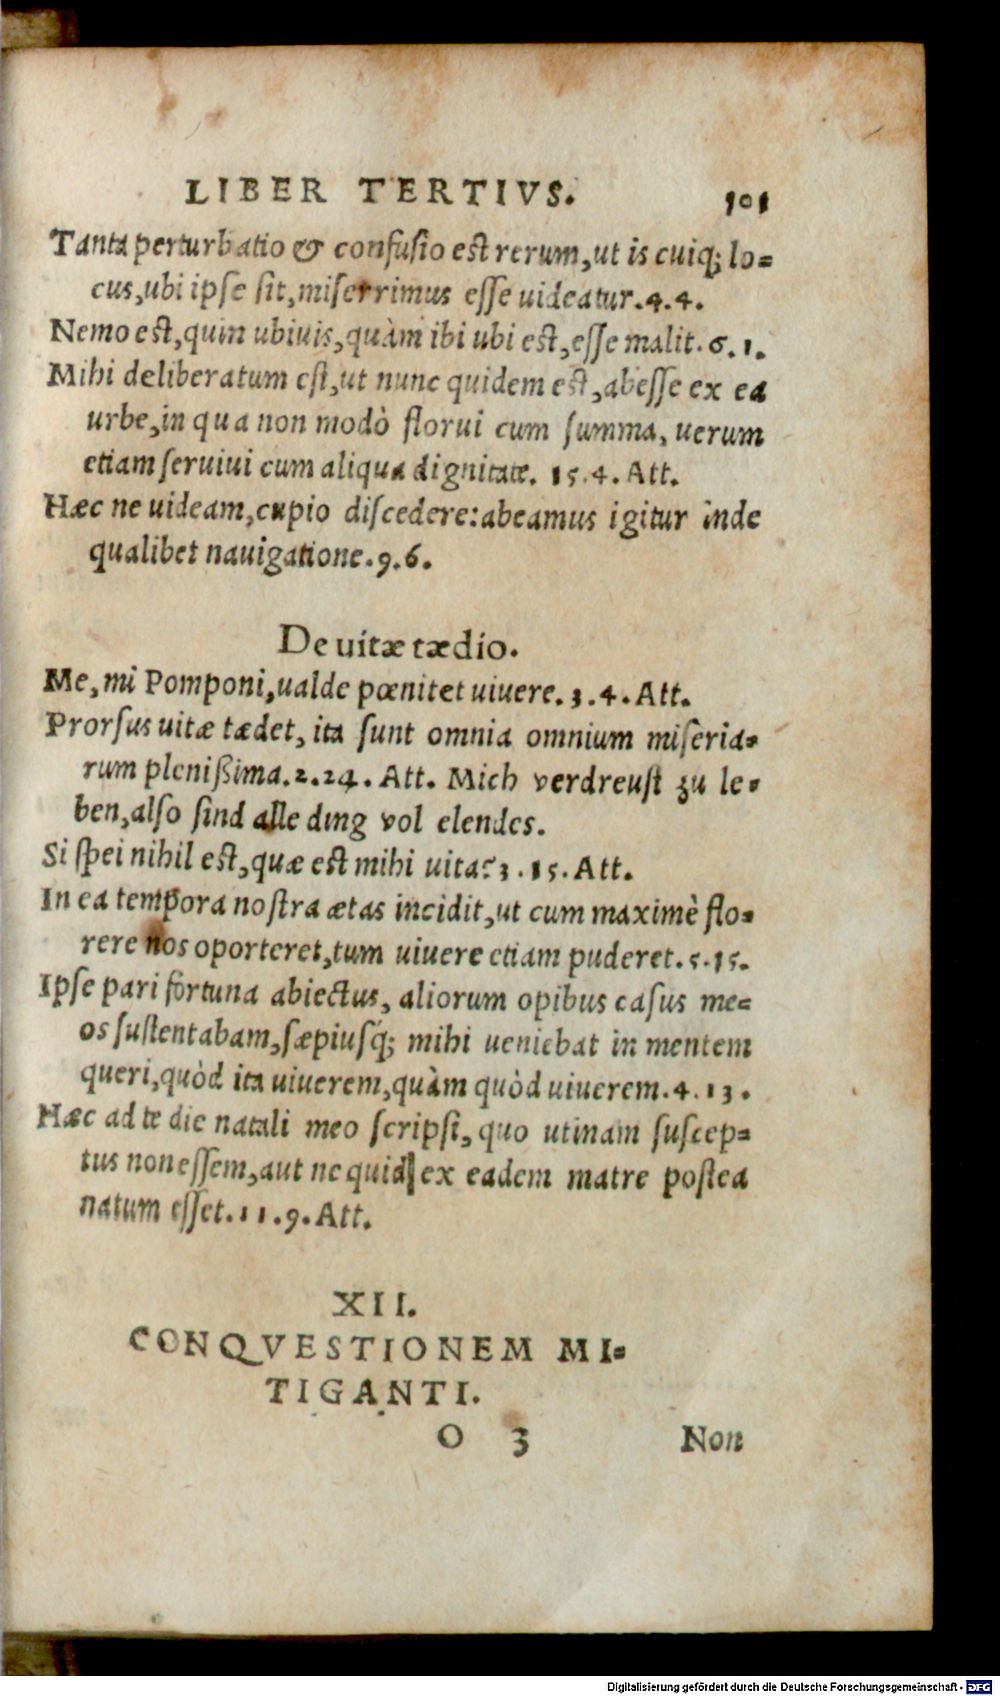 LIBER TERTIVS. 101
Tanta perturbatio & confusio est rerum, ut is cuiq; lo=
cus, ubi ipse sit, miserrimus esse uideatur. 4. 4.
Nemo est, quin ubiuis, quàm ibi ubi est, esse malit. 6. 1.
Mihi deliberatum est, ut nunc quidem est, abesse ex ea
urbe, in qua non modò florui cum summa, uerum
etiam seruiui cum aliqua dignitate. 15. 4. Att.
Hæc ne uideam, cupio discedere: abeamus igitur inde
qualibet nauigatione. 9. 6.
De uitæ tædio.
Me, mi Pomponi, ualde pœnitet uiuere. 3. 4. Att.
Prorsus uitæ tædet, ita sunt omnia omnium miseria=
rum plenißima. 2. 24. Att. Mich verdreust zu le=
ben, also sind alle ding vol elendes.
Si spei nihil est, quæ est mihi uita? 3. 15. Att.
In ea tempora nostra ætas incidit, ut cum maximè flo=
rere nos oporteret, tum uiuere etiam puderet. 5. 15.
Ipse pari fortuna abiectus, aliorum opibus casus me=
os sustentabam, sæpiusq́; mihi ueniebat in mentem
queri, quòd ita uiuerem, quàm quòd uiuerem. 4. 13.
Hæc ad te die natali meo scripsi, quo utinam suscep=
tus non essem, aut ne quid ex eadem matre postea
natum esset. 11. 9. Att.
XII.
CONQVESTIONEM MI=
TIGANTI.
O 3 Non
Digitalisierung gefördert durch die Deutsche Forschungsgemeinschaft - DFG